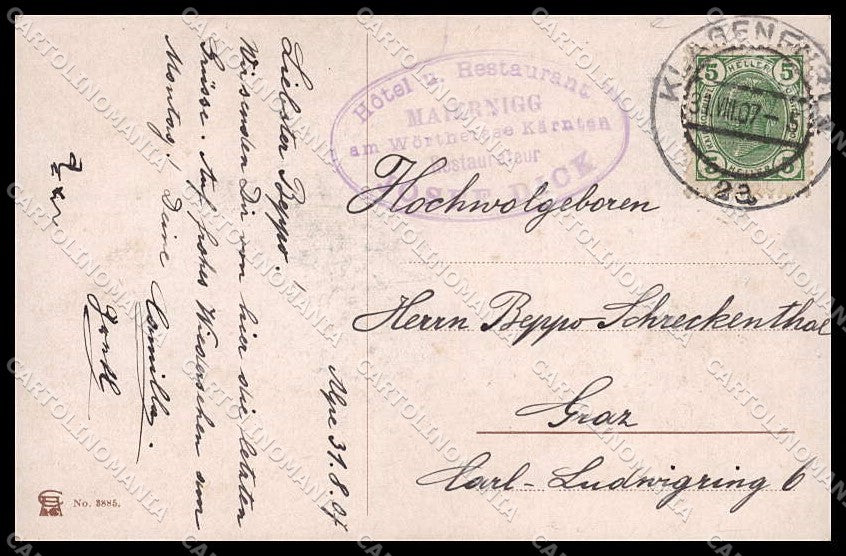 Alpe 31.8.07
Liebster Beppo!
Wir senden Dir von hier die letzten
Grüsse. Auf frohes Wiedersehen am
Montag! Deine Camilla.
Hôtel u. Restaurant
MAIERNIGG
am Wörthersee Kärnten
Restaurateur
JOSEF DICK
KLAGENFURT
31 VIII.07 - 5
2a
5 HELLER 5
5 5
Hochwolgeboren
Herrn Beppo Schreckenthal
Graz
Carl-Ludwigring 6
No. 3885.
CARTOLINOMANIA